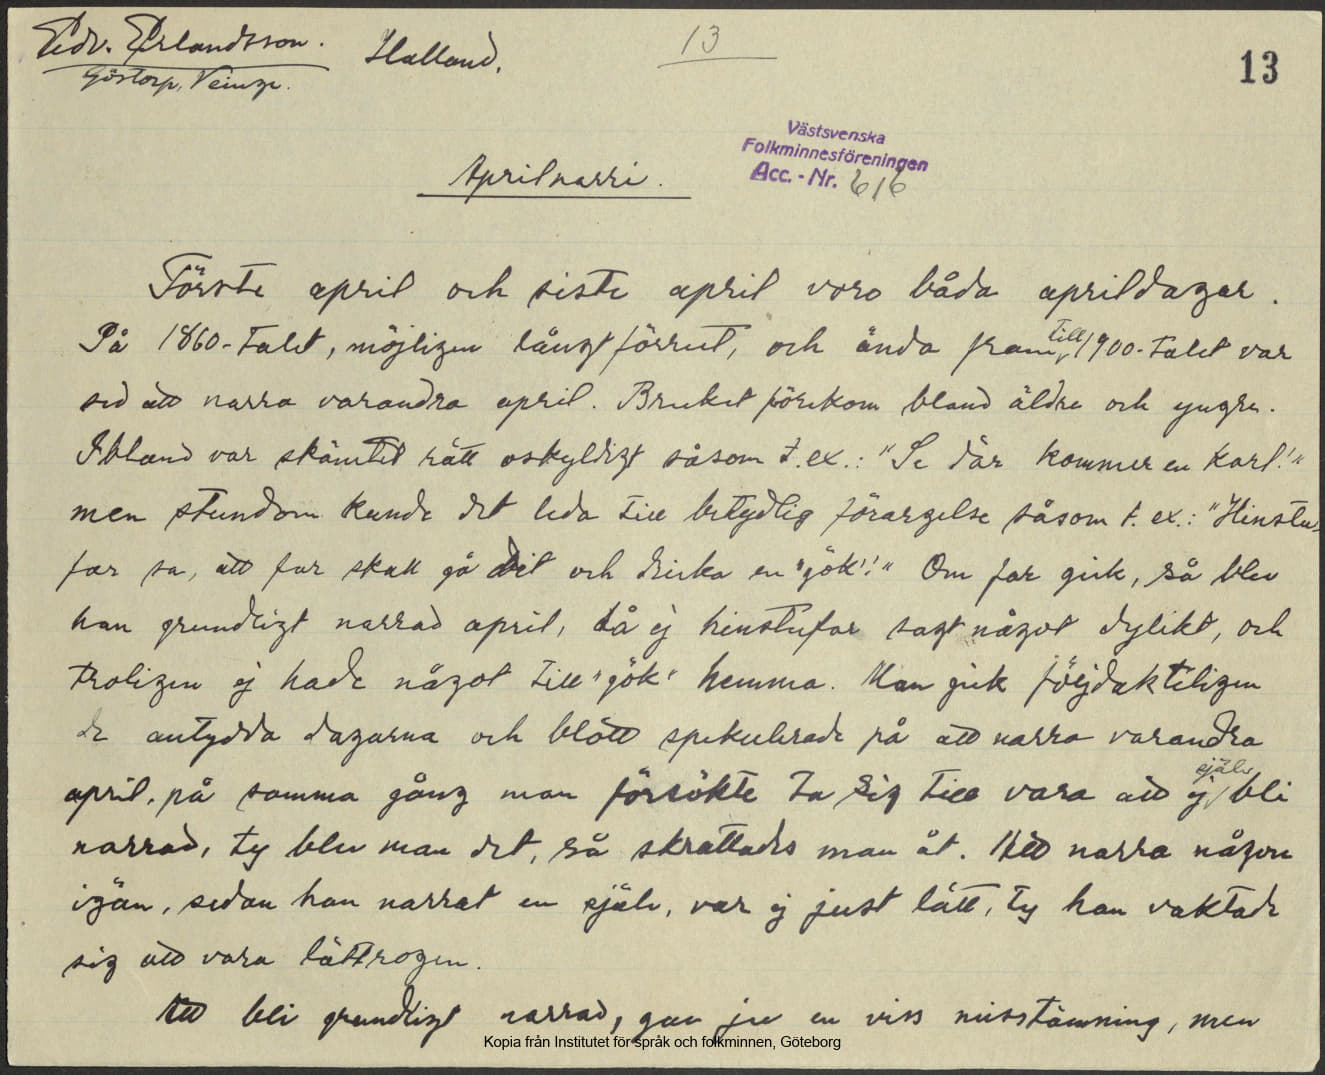 Edv. Erlandsson. Halland.
Göstorp, Veinge.
13
13
Västsvenska
Folkminnesföreningen
Acc.-Nr. 616
Aprilnarri.
Förste april och siste april voro båda aprildagar.
På 1860-talet, möjligen långt förrut, och ända fram till 1900-talet var
sed att narra varandra april. Bruket förekom bland äldre och yngre.
Ibland var skämtet rätt oskyldigt såsom t.ex.: "Se där kommer en karl!"
men stundom kunde det leda till betydlig förargelse såsom t. ex.: "Hinstu-
far sa, att far skall gå dit och dricka en "gök"!" Om far gick, så blev
han grundligt narrad april, då ej hinstufar sagt något dylikt, och
troligen ej hade något till "gök" hemma. Man gick följdaktligen
de antydda dagarna och blott spekulerade på att narra varandra
april, på samma gång man försökte ta sig till vara att ej själv bli
narrad, ty blev man det, så skrattades man åt. Att narra någon
igän, sedan han narrat en själv, var ej just lätt, ty han vaktade
sig att vara lättrogen.
Att bli grundligt narrad, gav ju en viss misstämning, men
Kopia från Institutet för språk och folkminnen, Göteborg